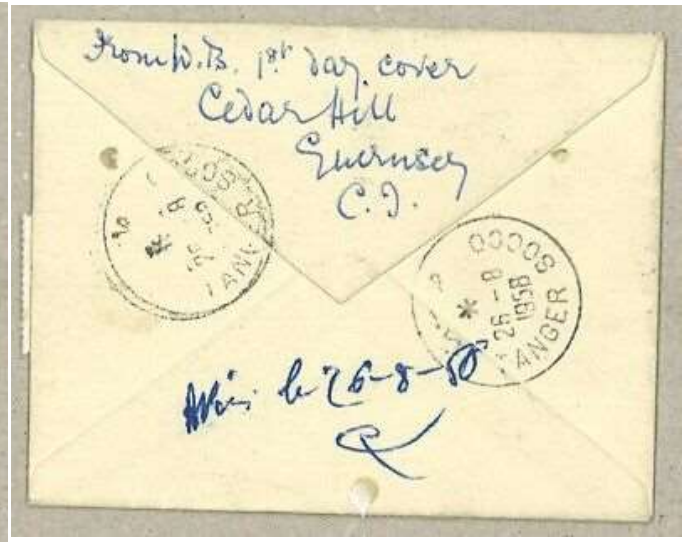 From W. B. 1st day cover
Cedar Hill
Guernsey
C.I.
TANGER SOCCO
26 - 8
1958
*
TANGER SOCCO
8
*
le 26-8-58